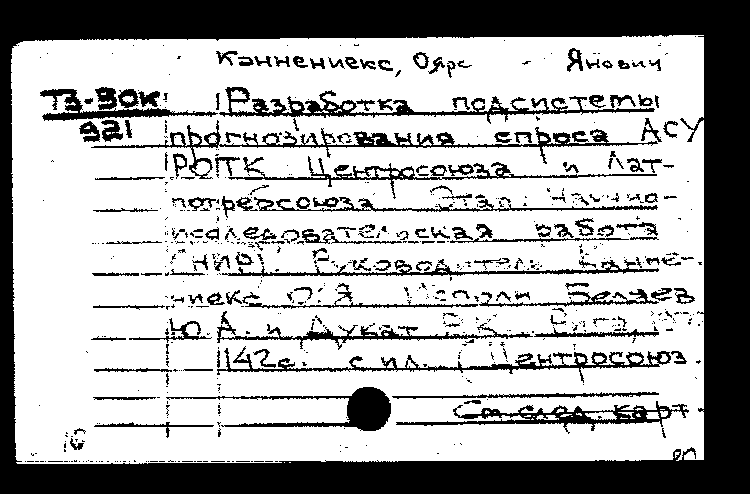 Каннениекс, Оярс Янович
ТЗ-ВОК Разработка подсистемы
921 прогнозирования спроса АСУ
РОТК Центросоюза и Лат-
потребсоюза Этап: Научно-
исследовательская работа
(НИР). Руководитель Канне-
ниекс О. Я. Исполн Беляев
Ю. А. и Дукат Р. К. Рига, 197
142с. с ил. (Центросоюз.
См. след. карт.